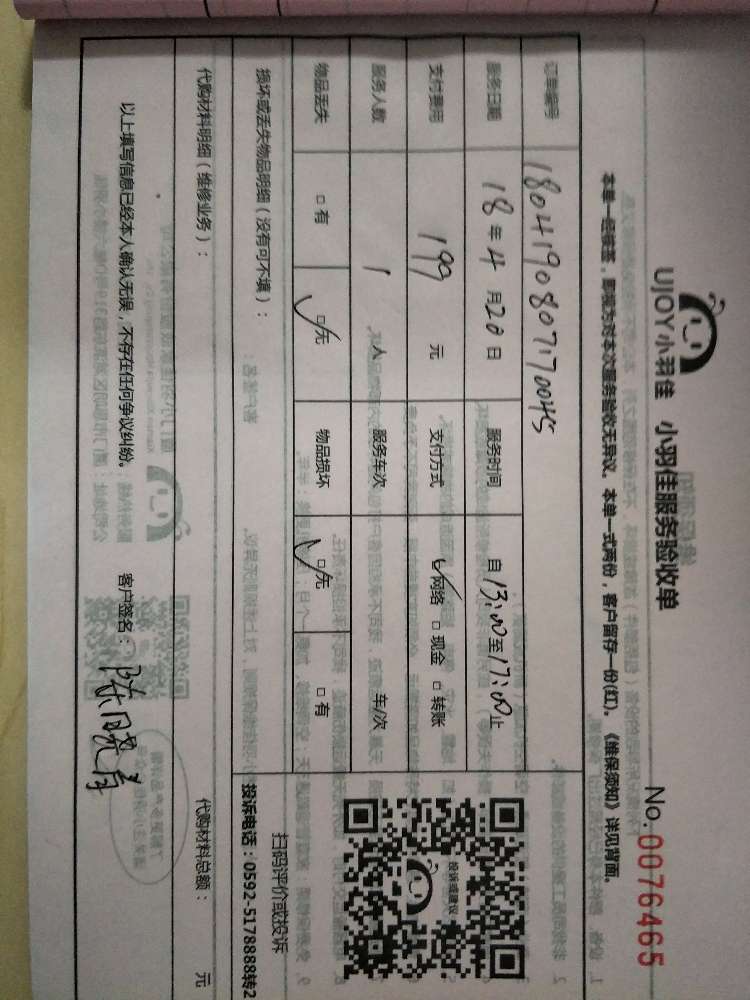 UJOY小羽佳 小羽佳服务验收单
No.0076465
本单一经核签，即视为对本次服务验收无异议。本单一式两份，客户留存一份(红)。《维保须知》详见背面。
订单编号 1804190807170045
服务日期 18年4月20日 服务时间 自13:00至17:00止
支付费用 199 元 支付方式 ☑网络 □现金 □转账
服务人数 1 人 服务车次 车/次
物品丢失 □有 ☑无 物品损坏 ☑无 □有
损坏或丢失物品明细（没有可不填）：
代购材料明细（维修业务）： 代购材料总额： 元
以上填写信息已经本人确认无误，不存在任何争议纠纷。 客户签名：
投诉或建议
扫码评价或投诉
投诉电话：0592-5178888转2